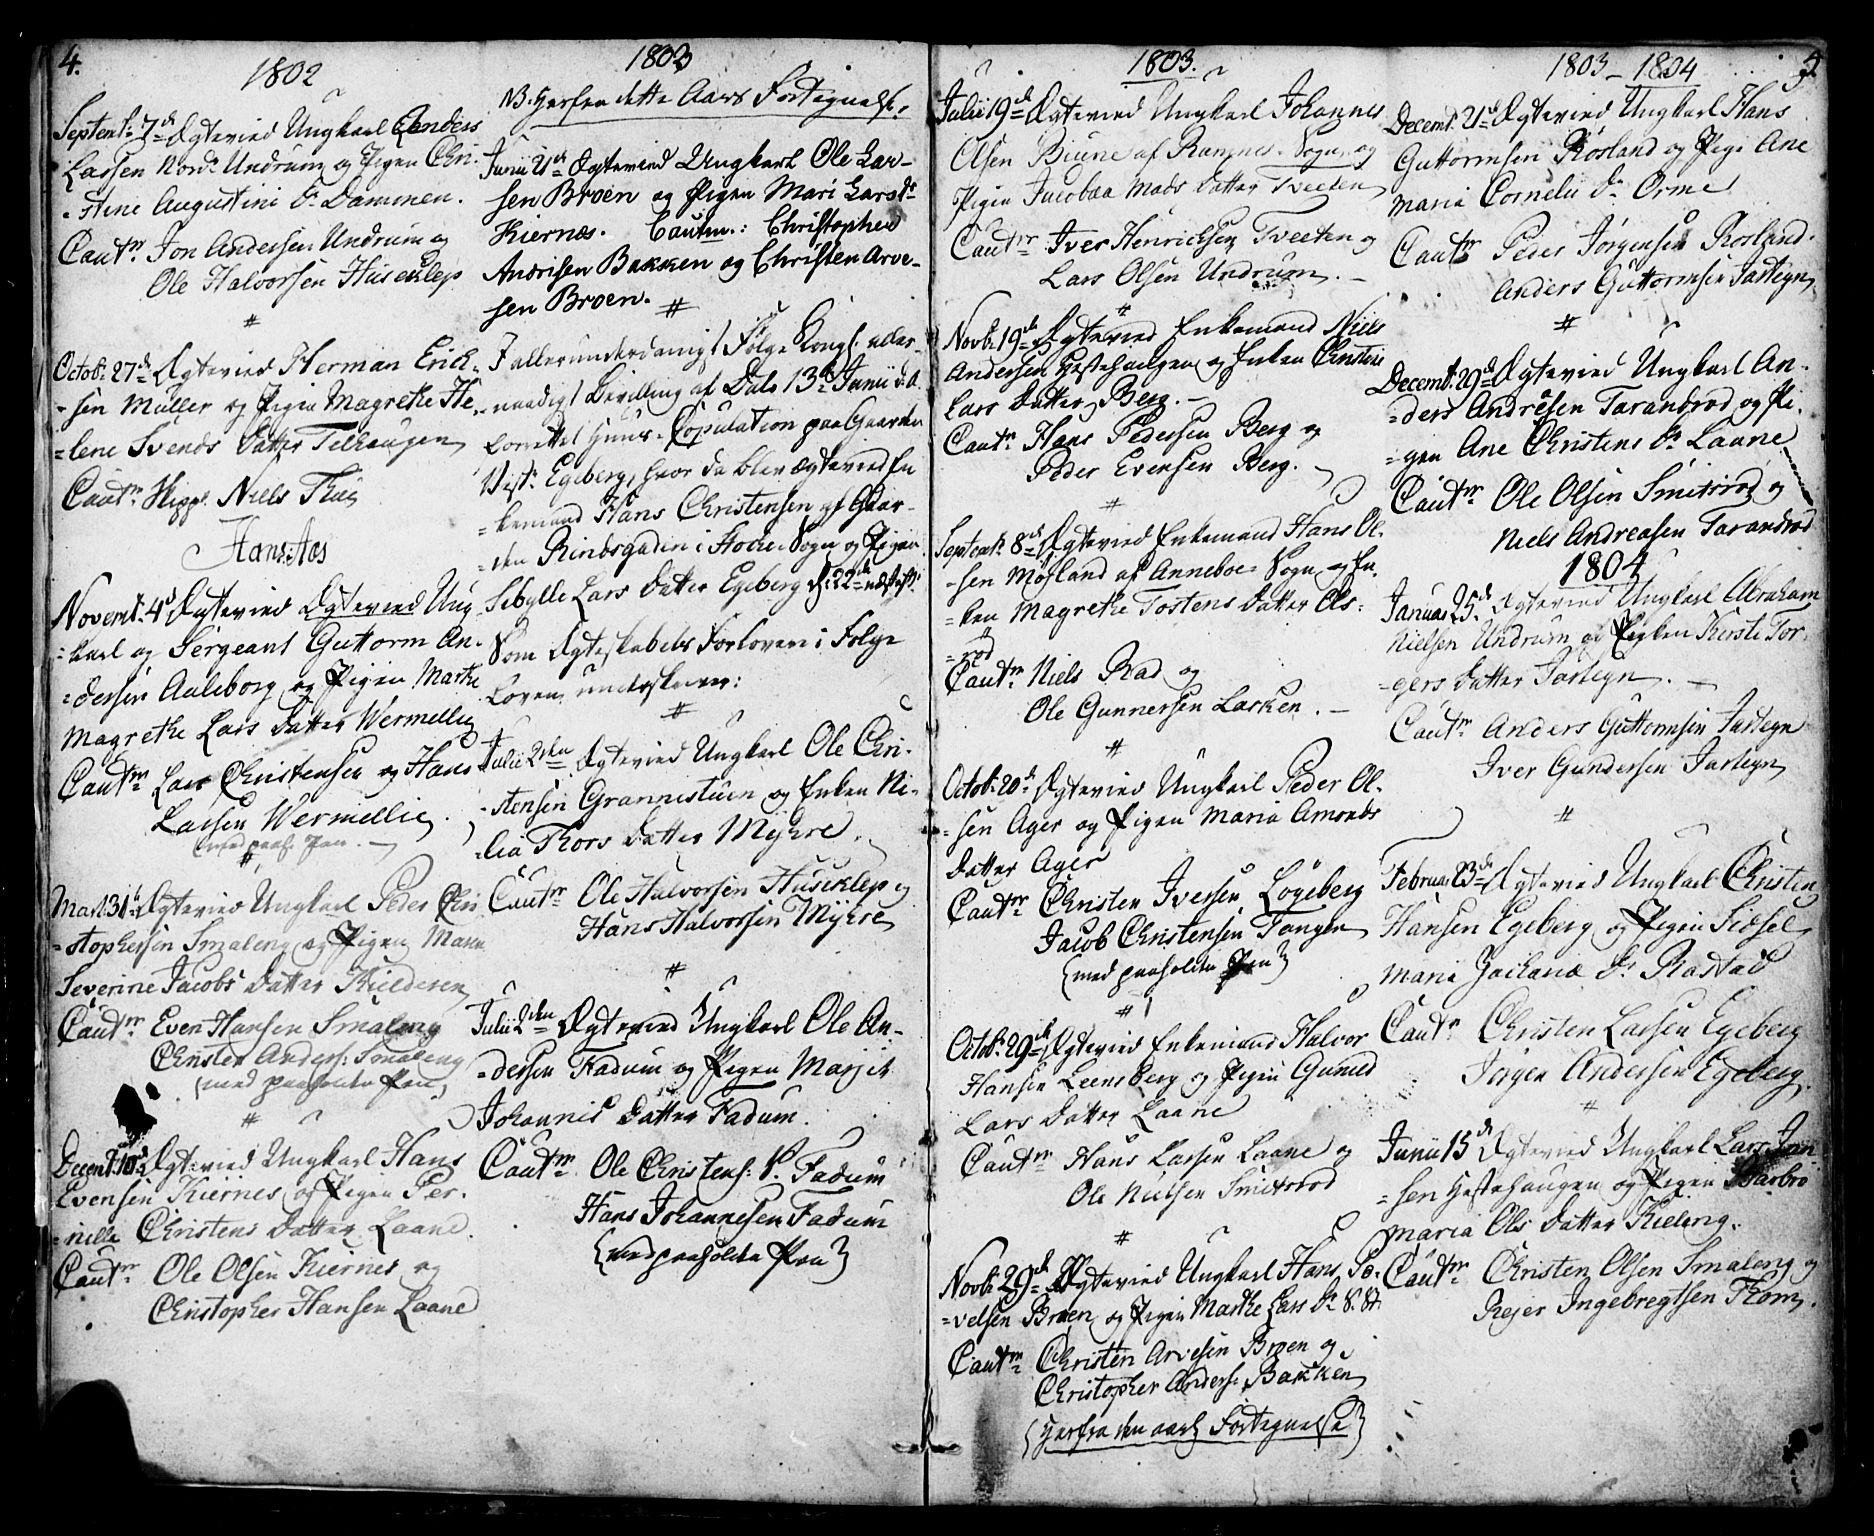 4.
1802
Septembr: 7de Ægtevied Ungkarl Anders
Larsen Nord: Undrum og Pigen Chri-
=stine Augustini Dr Dammen.
Cautnr Jon Andersen Undrum og
Ole Halvorsen Huseklep
#
Octobr: 27de Ægtevied Herman Erick-
=sen Müller og Pigen Magrethe He-
=lene Svends Datter Telhaugen
Cautnr Skippr. Niels Thue
Hans Aas
Novembr: 4de Ægtevied Ægtevied Ung-
=karl og Sergeant Guttorm An-
=dersen Auleborg og Pigen Marthe
Magrethe Lars Datter Wermellie
Cautnr Lars Christensen og Hans
Larsen Wermellie.
(med paah: Pen.
#
Mart: 31te Ægtevied Ungkarl Peder Chri
=stophersen Smaleng og Pigen Maren
Severine Jacobs Datter Kielderen
Cautnr Even Hansen Smaleng
Christen Anders: Smaleng
(med paaholden Pen)
#
Decembr: 10de Ægtevied Ungkarl Hans
Evensen Kiernes og Pigen Per-
=nille Christens Datter Laane.
Cautnr Ole Olsen Kiernes og
Christopher Hansen Laane
1803
NB. Herfra dette Aars Fortegnelse.
Junii 21de Ægtevied Ungkarl Ole Lar-
sen Broen og Pigen Mari Larsdr
Kiernæs. Cautnr.: Christopher
Andrisen Bakken og Christen Arve-
sen Broen.
#
I allerunderdanigst Følge Kongl. aller-
naadigst Bevilling af Dato 13de Junii d: A.
forrettet Huus-Copulation paa Gaarden
Vest: Egeberg, hvor da blev ægteviet En-
=kemand Hans Christensen af Gaar-
=den Rindsgaden i Hoffs Sogn og Pigen
Sibylle Lars Datter Egeberg d: 22de næstefr:
Som Ægteskabets Forlovere i Følge
Loven underskriver:
#
Julii 2den Ægtevied Ungkarl Ole Chri-
=stensen Grannistuen og Enken Ni-
=lia Thors Datter Myhre.
Cautnr Ole Halvorsen Huseklep og
Hans Halvorsen Myhre
#
Julii 2den Ægteviet Ungkarl Ole An-
=dersen Fadum og Pigen Marjet
Johannis Datter Fadum.
Cautnr Ole Christens: V. Fadum
Hans Johannesen Fadum
(med paaholden Pen)
1803.
Julii 19de Ægteviet Ungkarl Johannes
Olsen Biune af Ramnes-Sogn, og
Pigen Jacobaa Mads Datter Tveeten
Cautnr Iver Henrichsen Tveeten og
Lars Olsen Undrum.
#
Novbr: 19de Ægteviet Enkemand Niels
Andersen Hestehaugen og Enken Christine
Lars Datter Berg.
Cautnr Hans Pedersen Berg og
Peder Evensen Berg.
#
Septembr: 8de Ægteviet Enkemand Hans Ol-
=sen Møyland af Anneboe-Sogn og En-
=ken Magrethe Tostens Datter Ols-
=rød
Cautnr Niels Rad og
Ole Gunnersen Lasken.
#
Octobr: 20de Ægteviet Ungkarl Peder Ol-
=sen Ager og Pigen Maria Amonds
Datter Ager
Cautnr Christen Iversen Løgeberg
Jacob Christensen Tangen
(med paaholden Pen)
#
Octobr: 29de Ægteviet Enkemand Halvor
Hansen Leensberg og Pigen Gunild
Lars Datter Laane
Cautnr Hans Larsen Laane og
Ole Nielsen Smitsrød
#
Novbr: 29de Ægteviet Ungkarl Hans Po-
=velsen Broen og Pigen Marthe Lars Dr
Cautnr Christen Arvesen Broen og
Christopher Anders: Bakken
(Herfra den aarl Fortegnelse)
1803 – 1804
Decembr: 21de Ægteviet Ungkarl Hans
Guttormsen Røsland og Pige Ane
Maria Cornelii Dr Orme
Cautnr Peder Jørgensen Rosland.
Anders Guttormsen Jarteyn
#
Decembr: 29de Ægteviet Ungkarl An-
=ders Andresen Tarandrød og Pi-
=gen Ane Christens Dr Laane
Cautnr Ole Olsen Smitsrød og
Niels Andreasen Tarandrød
1804
Januar 25de Ægteviet Ungkarl Abraham
Nielsen Undrum og Pigen Kirste Tor-
=gers Datter Jarteyn.
Cautnr Anders Guttormsen Jarteyn
Iver Gundersen Jarteyn
#
Februar 23de Ægteviet Ungkarl Christen
Hansen Egeberg og Pigen Sidsel
Maria Zachariæ Dr Rastad
Cautnr Christen Larsen Egeberg
Jørgen Andersen Egeberg.
#
Junii 15de Ægteviet Ungkarl Lars Jon-
=sen Hestehaugen og Pigen Barbro
Maria Ols Datter Kieleng.
Cautnr Christen Olsen Smaleng og
Rejer Ingebregtsen Kom.